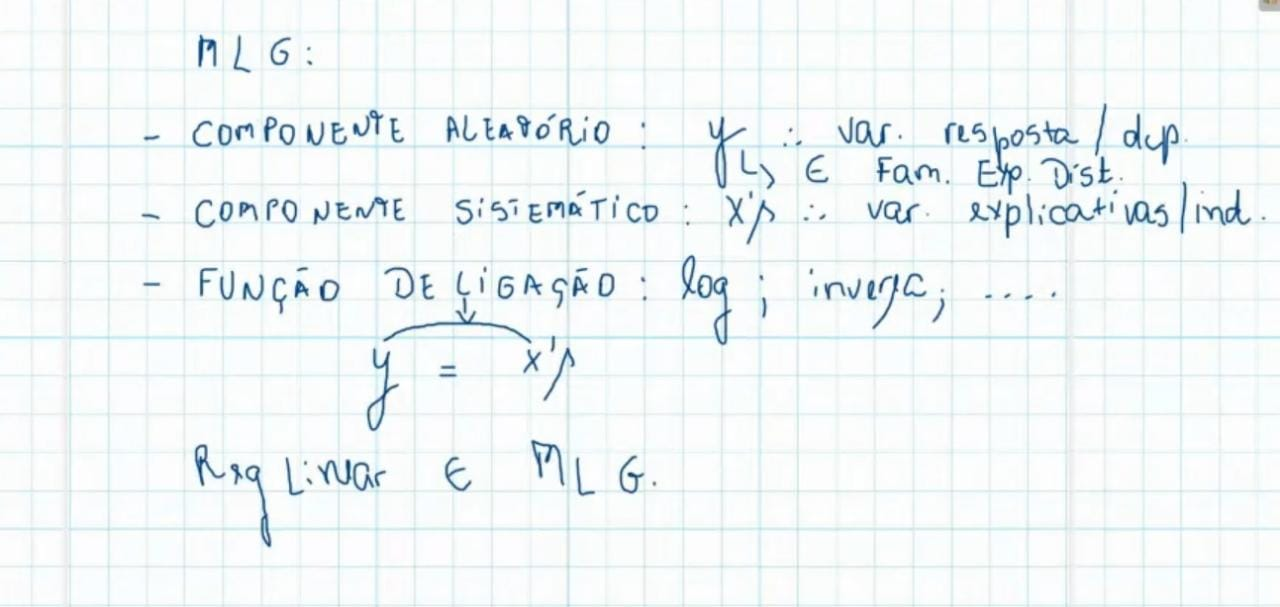 MLG:
- COMPONENTE ALEATÓRIO: y ∴ var. resposta / dep.
↳ ∈ Fam. Exp. Dist.
- COMPONENTE SISTEMÁTICO: X'β ∴ var. explicativas/ind.
- FUNÇÃO DE LIGAÇÃO: log; inversa; ....
y = x'β
Reg Linear ∈ MLG.